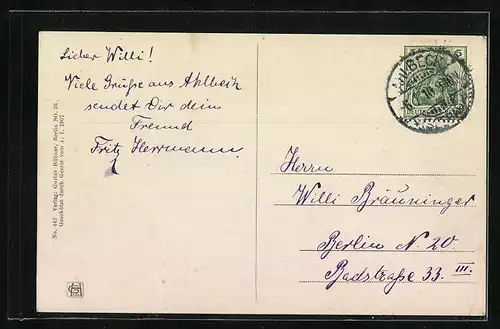 Lieber Willi!
Viele Grüße aus Ahlbeck
sendet Dir dein
Freund
Fritz Herrmann.
Herrn
Willi Bräuninger
Berlin N 20.
Badstraße 33. III.
AHLBECK
5
No. 442 Verlag: Gustav Köhler, Berlin, SO. 26.
Geschützt durch Gesetz vom 1. 7. 1907.